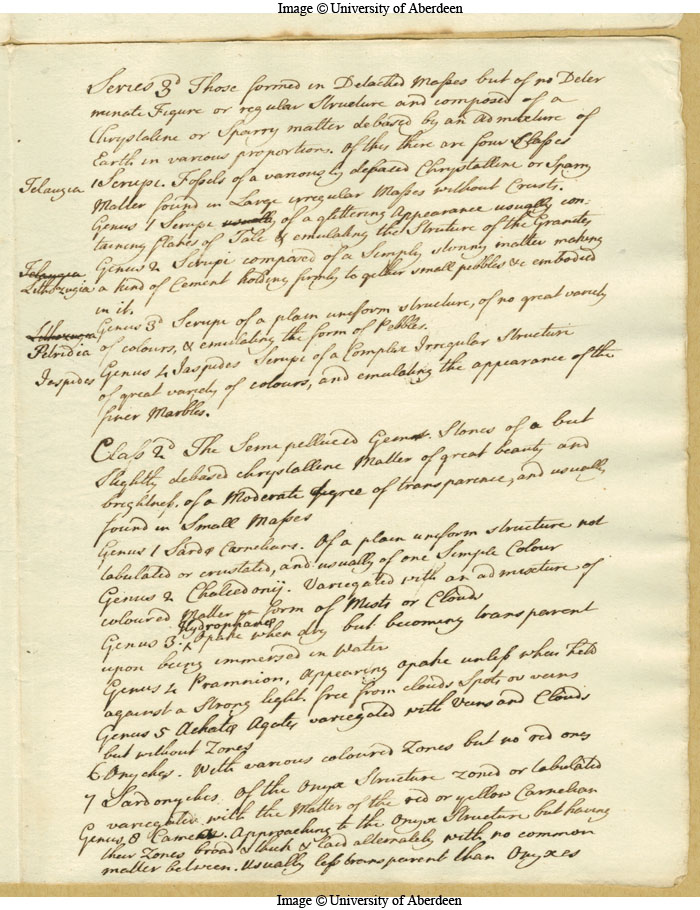 Image © University of Aberdeen
Series 3d Those formed in Detached Masses but of no Deter
minate Figure or regular Structure and composed of a
Chrystaline or Sparry matter debased by an admixture of
Earth in various proportion. Of this there are four Classes
Telaugia 1 Scrupi. Fossels of a variously debased Chrystalline or Sparry
Matter found in Large irregular Masses without Crusts.
Genus 1 Scrupi usually of a glittering Appearance usually con-
taining flakes of Talc & emulating the Struture of the Granites
Telaugia Genus 2 Scrupi composed of a Simple stonny matter making
Lithozugia a kind of Cement holding firmly to gether small pebbles &c embodied
in it.
Lithozugia Genus 3d Scrupi of a plain uniform structure, of no great variety
Petridia of colours, & emulating the form of Pebbles.
Jaspides Genus 4 Jaspides Scrupi of a Complex Irregular Structure
of great variety of colours, and emulating the appearance of the
finer Marbles.
Class 2d The Semepelluced Gems. Stones of a but
Slightly debased chrystalline Matter of great beauty and
brightness. of a Moderate degree of transparence, and usually
found in Small Masses
Genus 1 Sardæ Carnelians. Of a plain uniform structure not
tabulated or crustated, and usually of one Simple Colour
Genus 2 Chalcedonij. Variegated with an admixture of
coloured Matter in form of Mists or Clouds
Hydrophanes
Genus 3. Opake when dry but becoming transparent
upon being immersed in water
Genus 4 Pramnion, Appearing opake unless when held
against a Strong light. free from clouds Spots or veins
Genus 5 Achatæ Agates variegated with Veins and Clouds
but without Zones
6 Onyches. With various coloured Zones but no red ones
7 Sardonyches Of the Onyx Structure zoned or tabulated
variegated with the Matter of the red or yellow Carnelian
Genus 8 Approaching to the Onyx Structure but having
their Zones broad & thick & laid alternately with no common
matter between. Usually less transparent than Onyxes
Image © University of Aberdeen